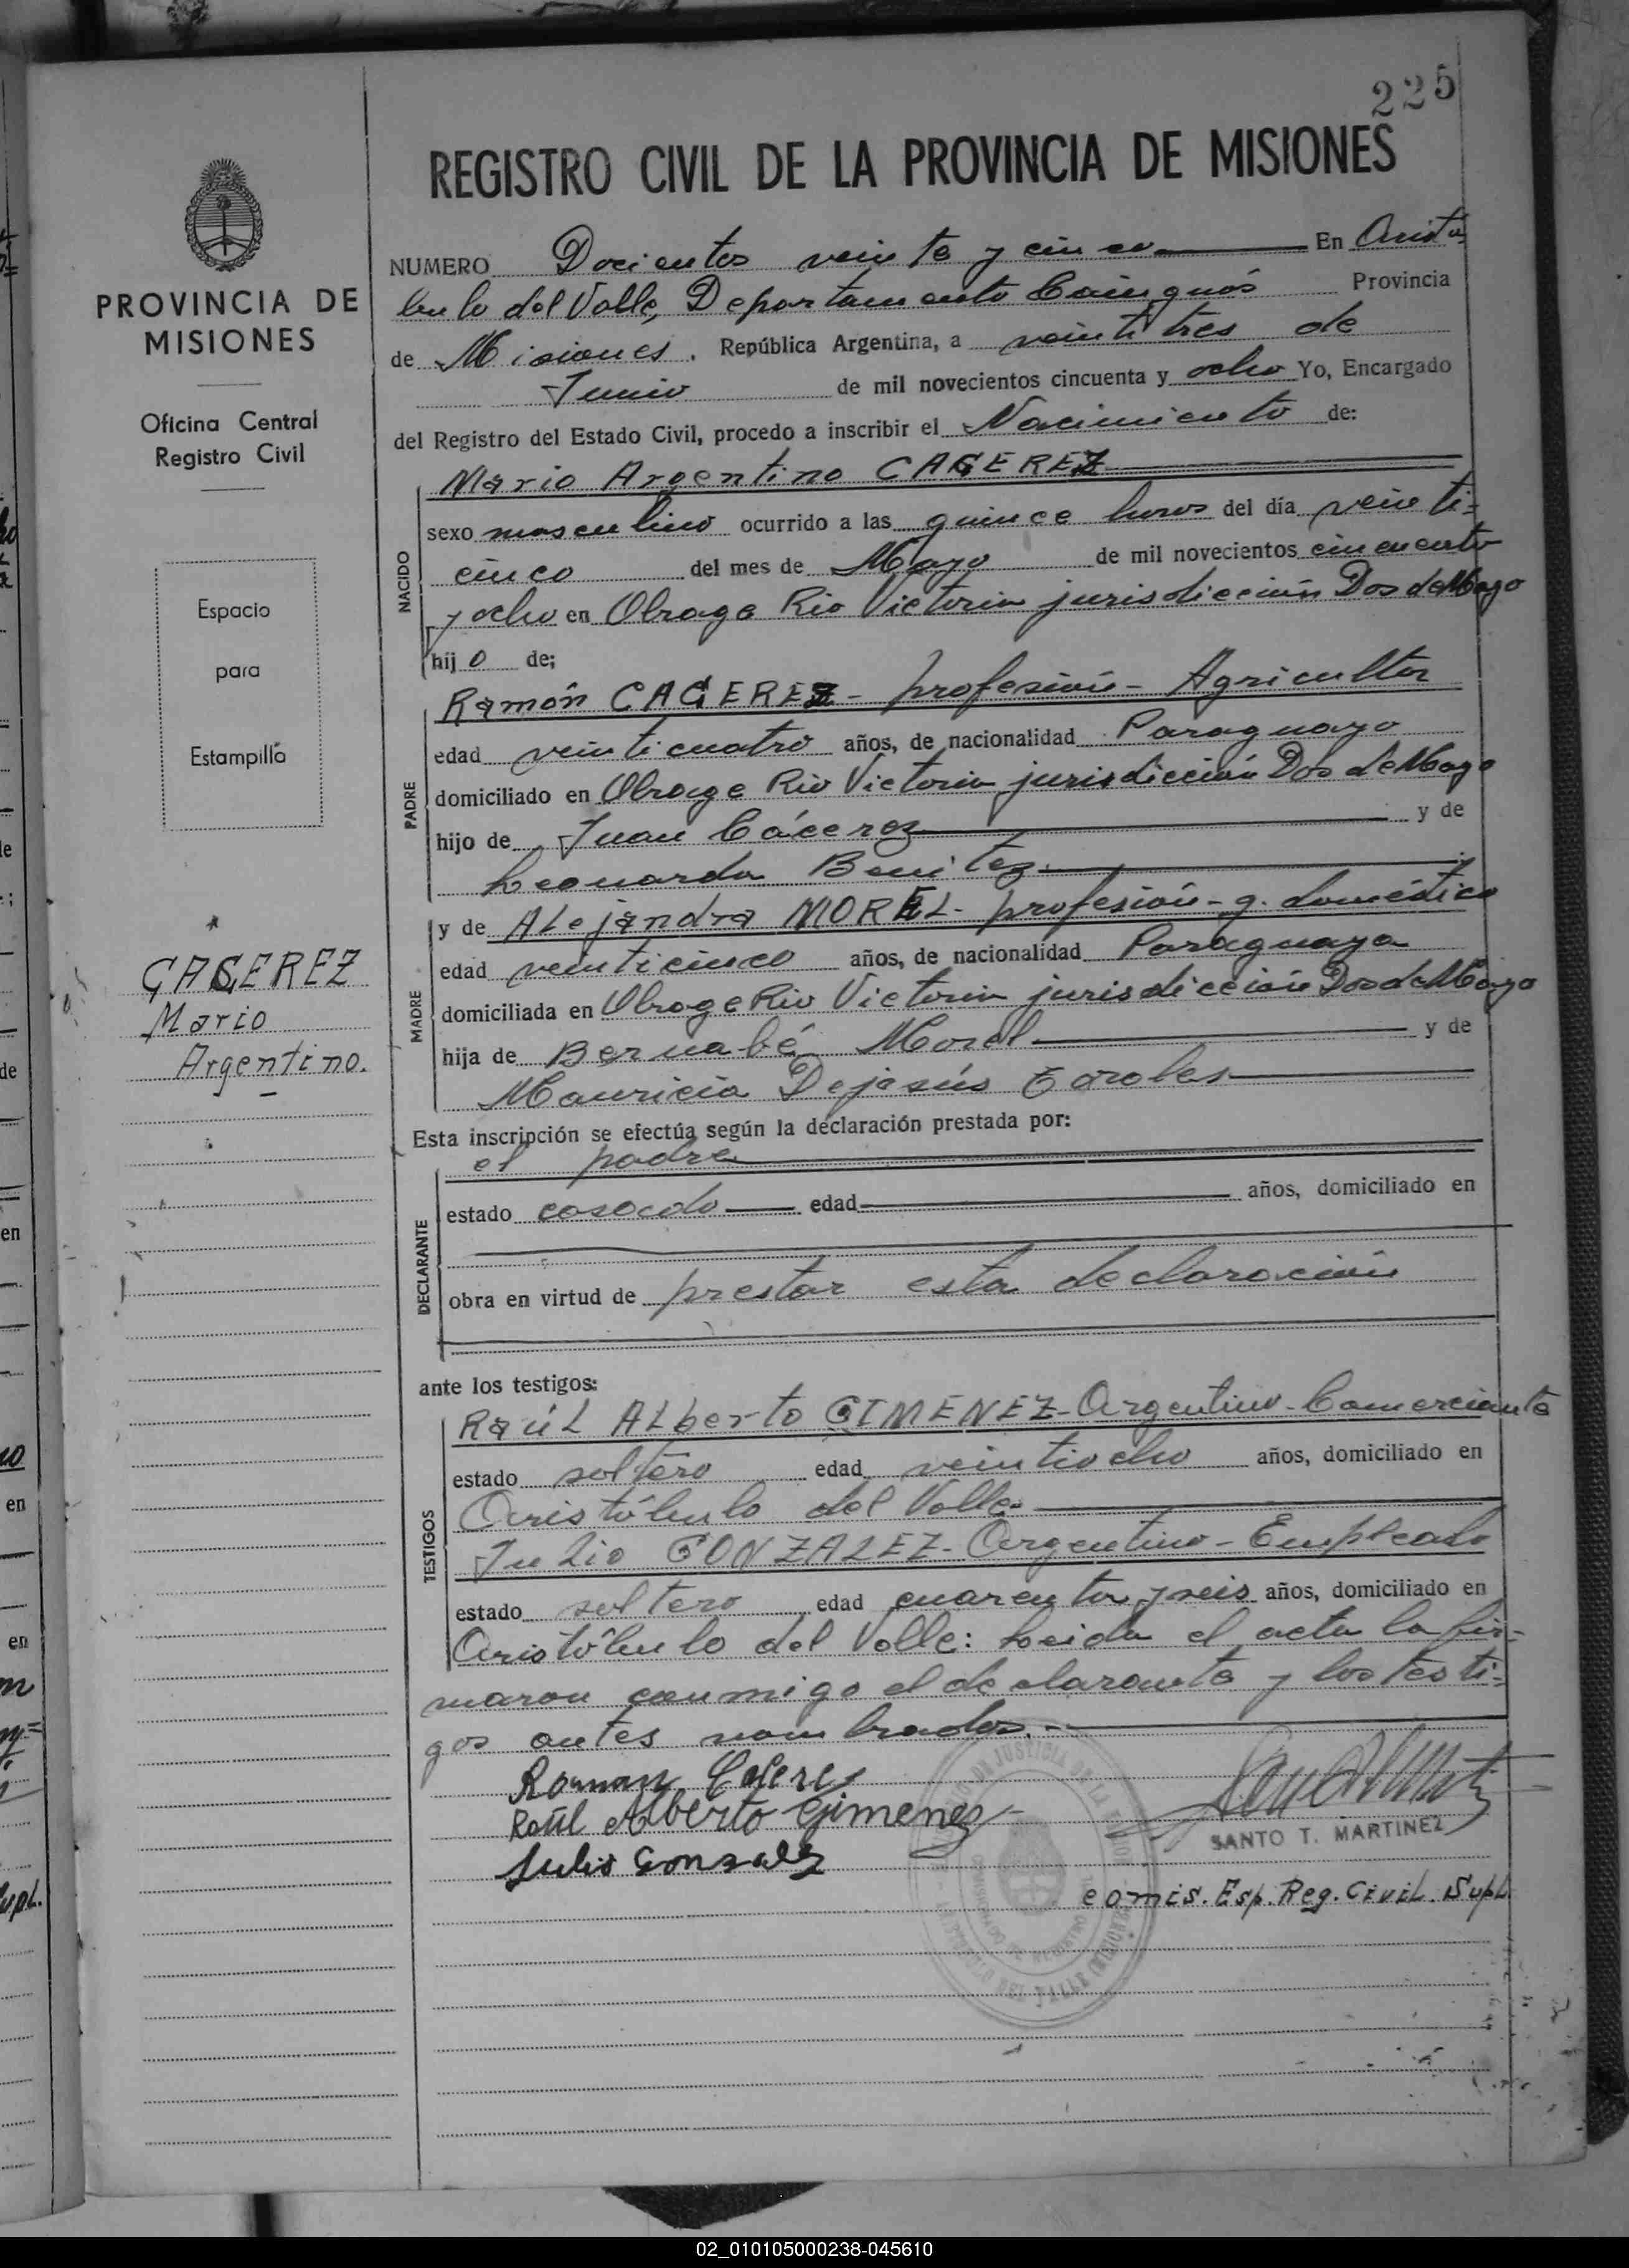 225
REGISTRO CIVIL DE LA PROVINCIA DE MISIONES
PROVINCIA DE
MISIONES
Oficina Central
Registro Civil
Espacio
para
Estampilla
CACEREZ
Mario
Argentino.
NUMERO Docientos veinte y cinco En Aristó
bulo del Valle, Departamento Cainguás Provincia
de Misiones. República Argentina, a veintitres de
Junio de mil novecientos cincuenta y ocho Yo, Encargado
del Registro del Estado Civil, procedo a inscribir el Nacimiento de:
NACIDO
Mario Argentino CACEREZ
sexo masculino ocurrido a las quince horas del día veinti=
cinco del mes de Mayo de mil novecientos cincuenta
y ocho en Obrage Rio Victoria jurisdicción Dos de Mayo
hij o de;
PADRE
Ramón CACEREZ - profesión - Agricultor
edad veinticuatro años, de nacionalidad Paraguayo
domiciliado en Obrage Rio Victoria jurisdicción Dos de Mayo
hijo de Juan Cácerez y de
Leonarda Benitez
MADRE
y de Alejandra MOREL - profesión - q. doméstico
edad veinticinco años, de nacionalidad Paraguaya
domiciliada en Obrage Rio Victoria jurisdicción Dos de Mayo
hija de Bernabé Morel y de
Mauricia Dejesús
Esta inscripción se efectúa según la declaración prestada por:
DECLARANTE
el padre
estado casado edad años, domiciliado en
obra en virtud de prestar esta declaración
ante los testigos:
TESTIGOS
Raúl Alberto GIMENEZ - Argentino - Comerciante
estado soltero edad veintiocho años, domiciliado en
Aristóbulo del Valle
Julio GONZALEZ - Argentino - Empleado
estado soltero edad cuarenta y seis años, domiciliado en
Aristóbulo del Valle: Leida el acta la fir-
maron conmigo el declarante y los testi-
gos antes nombrados.-
Roman Caseres
Raúl Alberto Gimenez
Julio Gonzalez
SANTO T. MARTINEZ
comis. Esp. Reg. Civil. Supl.
02_010105000238-045610